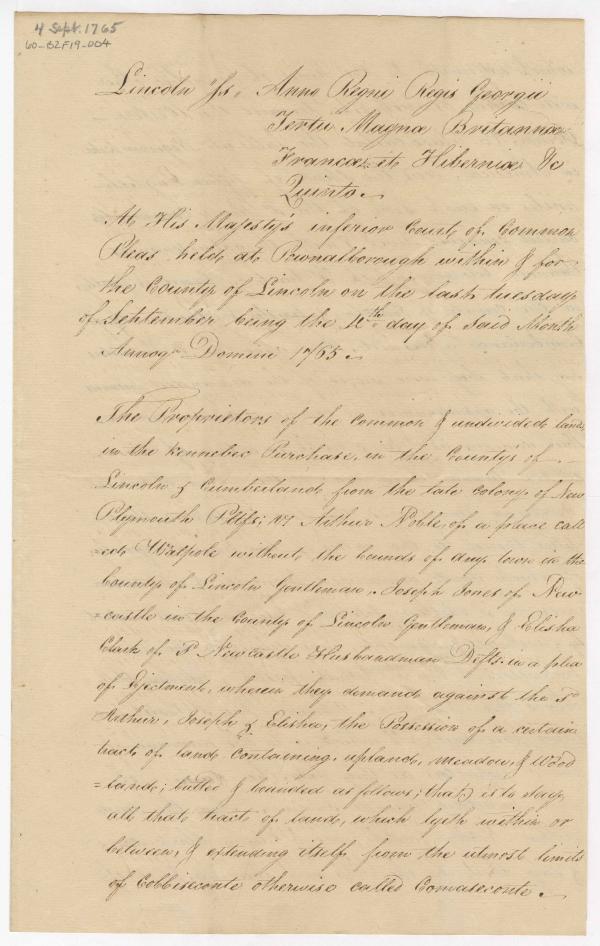 4 Sept. 1765
60-B2F19-004
Lincoln ss. Anno Regni Regis Georgii
Tertii Magna Britannia
Francæ et Hiberniæ &c
Quinto.
At His Majesty's inferior Court of Common
Pleas held at Pownalborough within & for
the County of Lincoln on the last tuesday
of September being the 4th day of Said Month
Annoq Domini 1765.
The Proprietors of the Common & undivided lands
in the Kennebec Purchase, in the Countys of
Lincoln & Cumberland, from the late Colony of New
Plymouth Pltfs; vs Arthur Noble, of a place call
=ed Walpole without the bounds of any town in the
County of Lincoln Gentleman, Joseph Jones of New
=castle in the County of Lincoln Gentleman, & Elisha
Clark of sd Newcastle Husbandman Defts. in a plea
of Ejectment, wherein they demand against the sd
Arthur, Joseph & Elisha, the Possession of a certain
tract of land containing upland, meadow, & Wood
=land; butted & bounded as follows; that is to say,
all that tract of land, which lyeth within or
between, & extending itself from the utmost limits
of Cobbiseconte otherwise called Comaseconte.